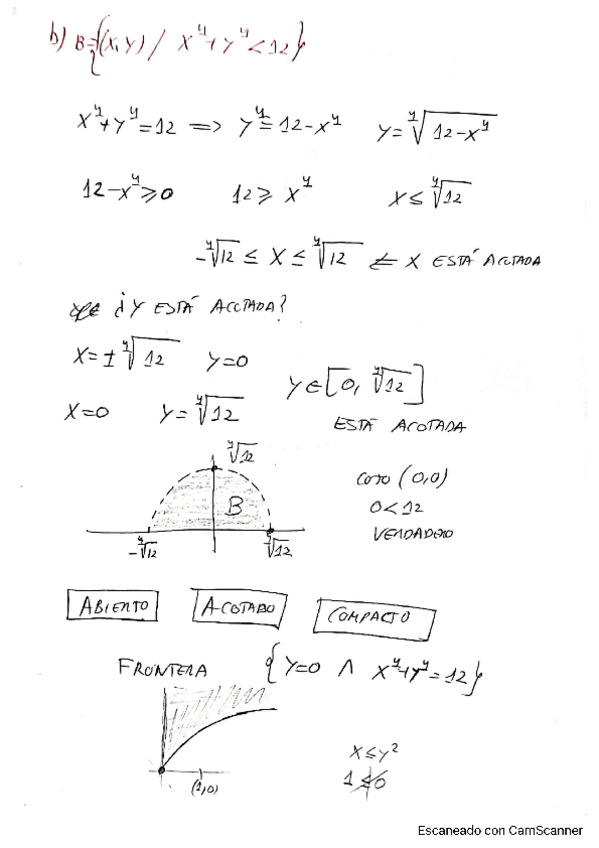 b) B={(X,Y) / X⁴+Y⁴<12}
X⁴+Y⁴=12 ⟹ Y⁴=12-X⁴ Y=∜(12-X⁴)
12-X⁴≥0 12≥X⁴ X≤∜12
-∜12 ≤ X ≤ ∜12 ⇐ X ESTÁ ACOTADA
¿Y ESTÁ ACOTADA?
X=±∜12 Y=0
X=0 Y=∜12
Y∈[0, ∜12]
ESTÁ ACOTADA
∜12
B
-∜12 ∜12
COJO (0,0)
0<12
VERDADERO
ABIERTO ACOTADO COMPACTO
FRONTERA {Y=0 ∧ X⁴+Y⁴=12}
(1,0)
X≤Y²
1≰0
Escaneado con CamScanner